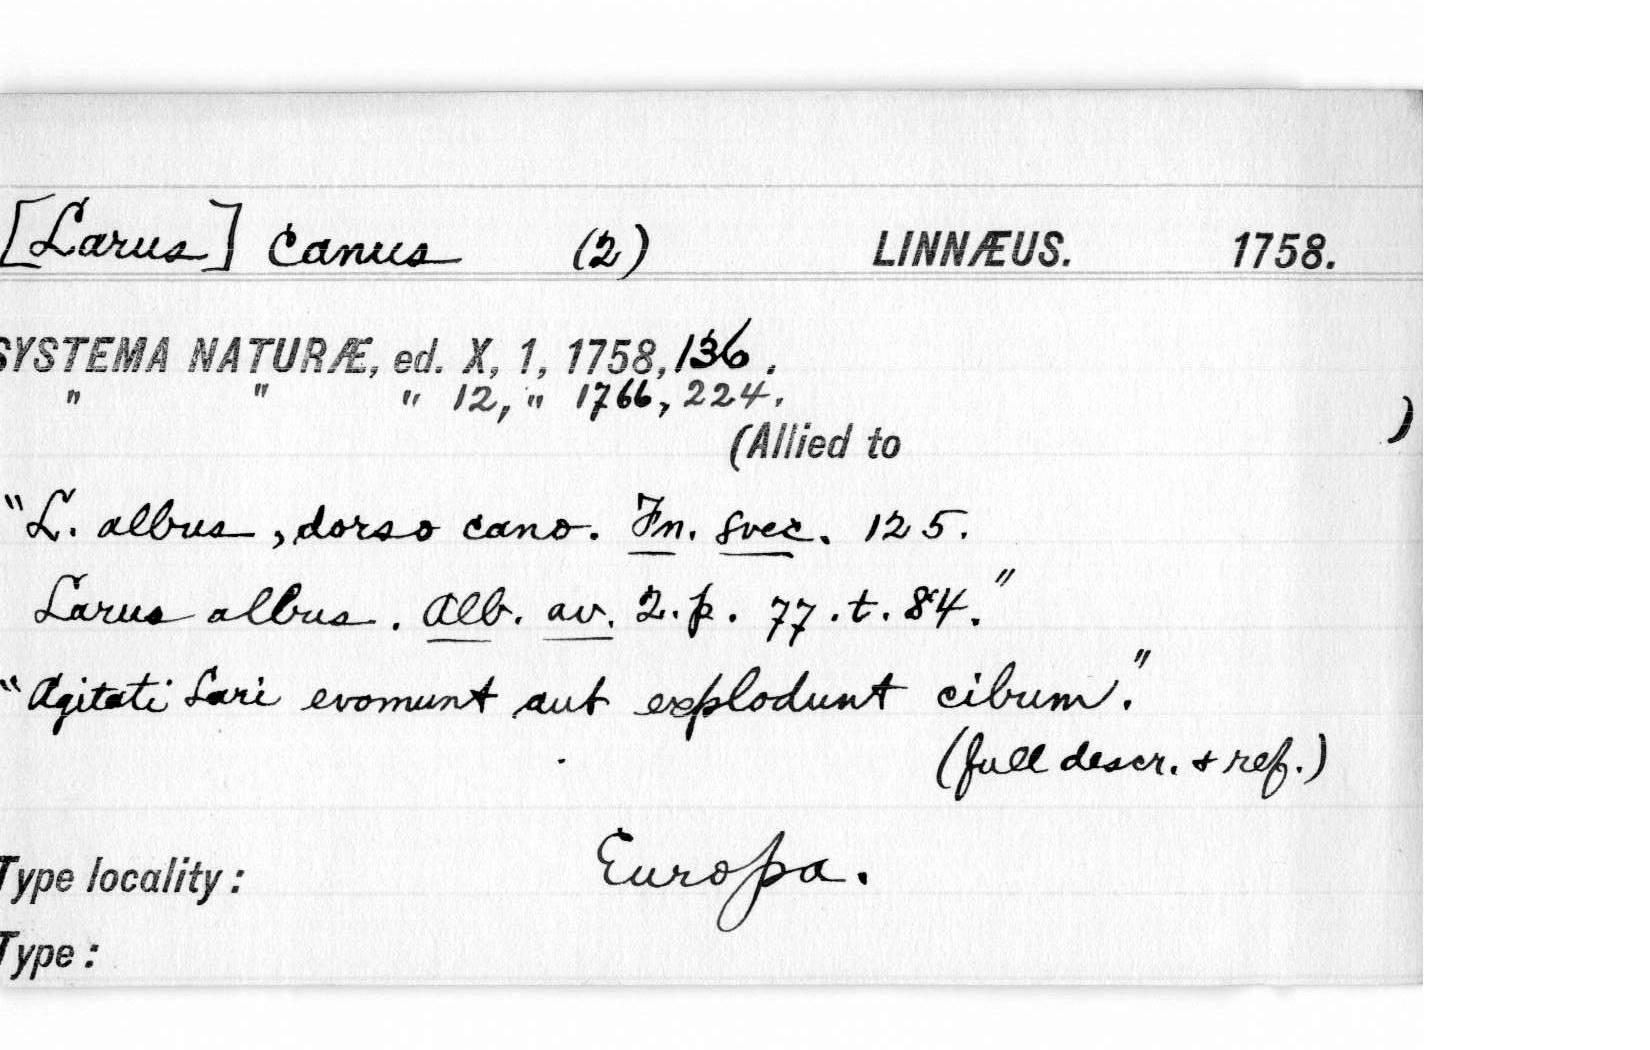 [Larus] canus (2) LINNÆUS. 1758.
SYSTEMA NATURÆ, ed. X, 1, 1758, 136.
" " " 12, " 1766, 224.
(Allied to )
"L. albus, dorso cano. Fn. svec. 125.
Larus albus. Alb. av. 2. p. 77. t. 84."
"Agitati Lari evomunt aut explodunt cibum."
(full descr. & ref.)
Type locality: Europa.
Type: